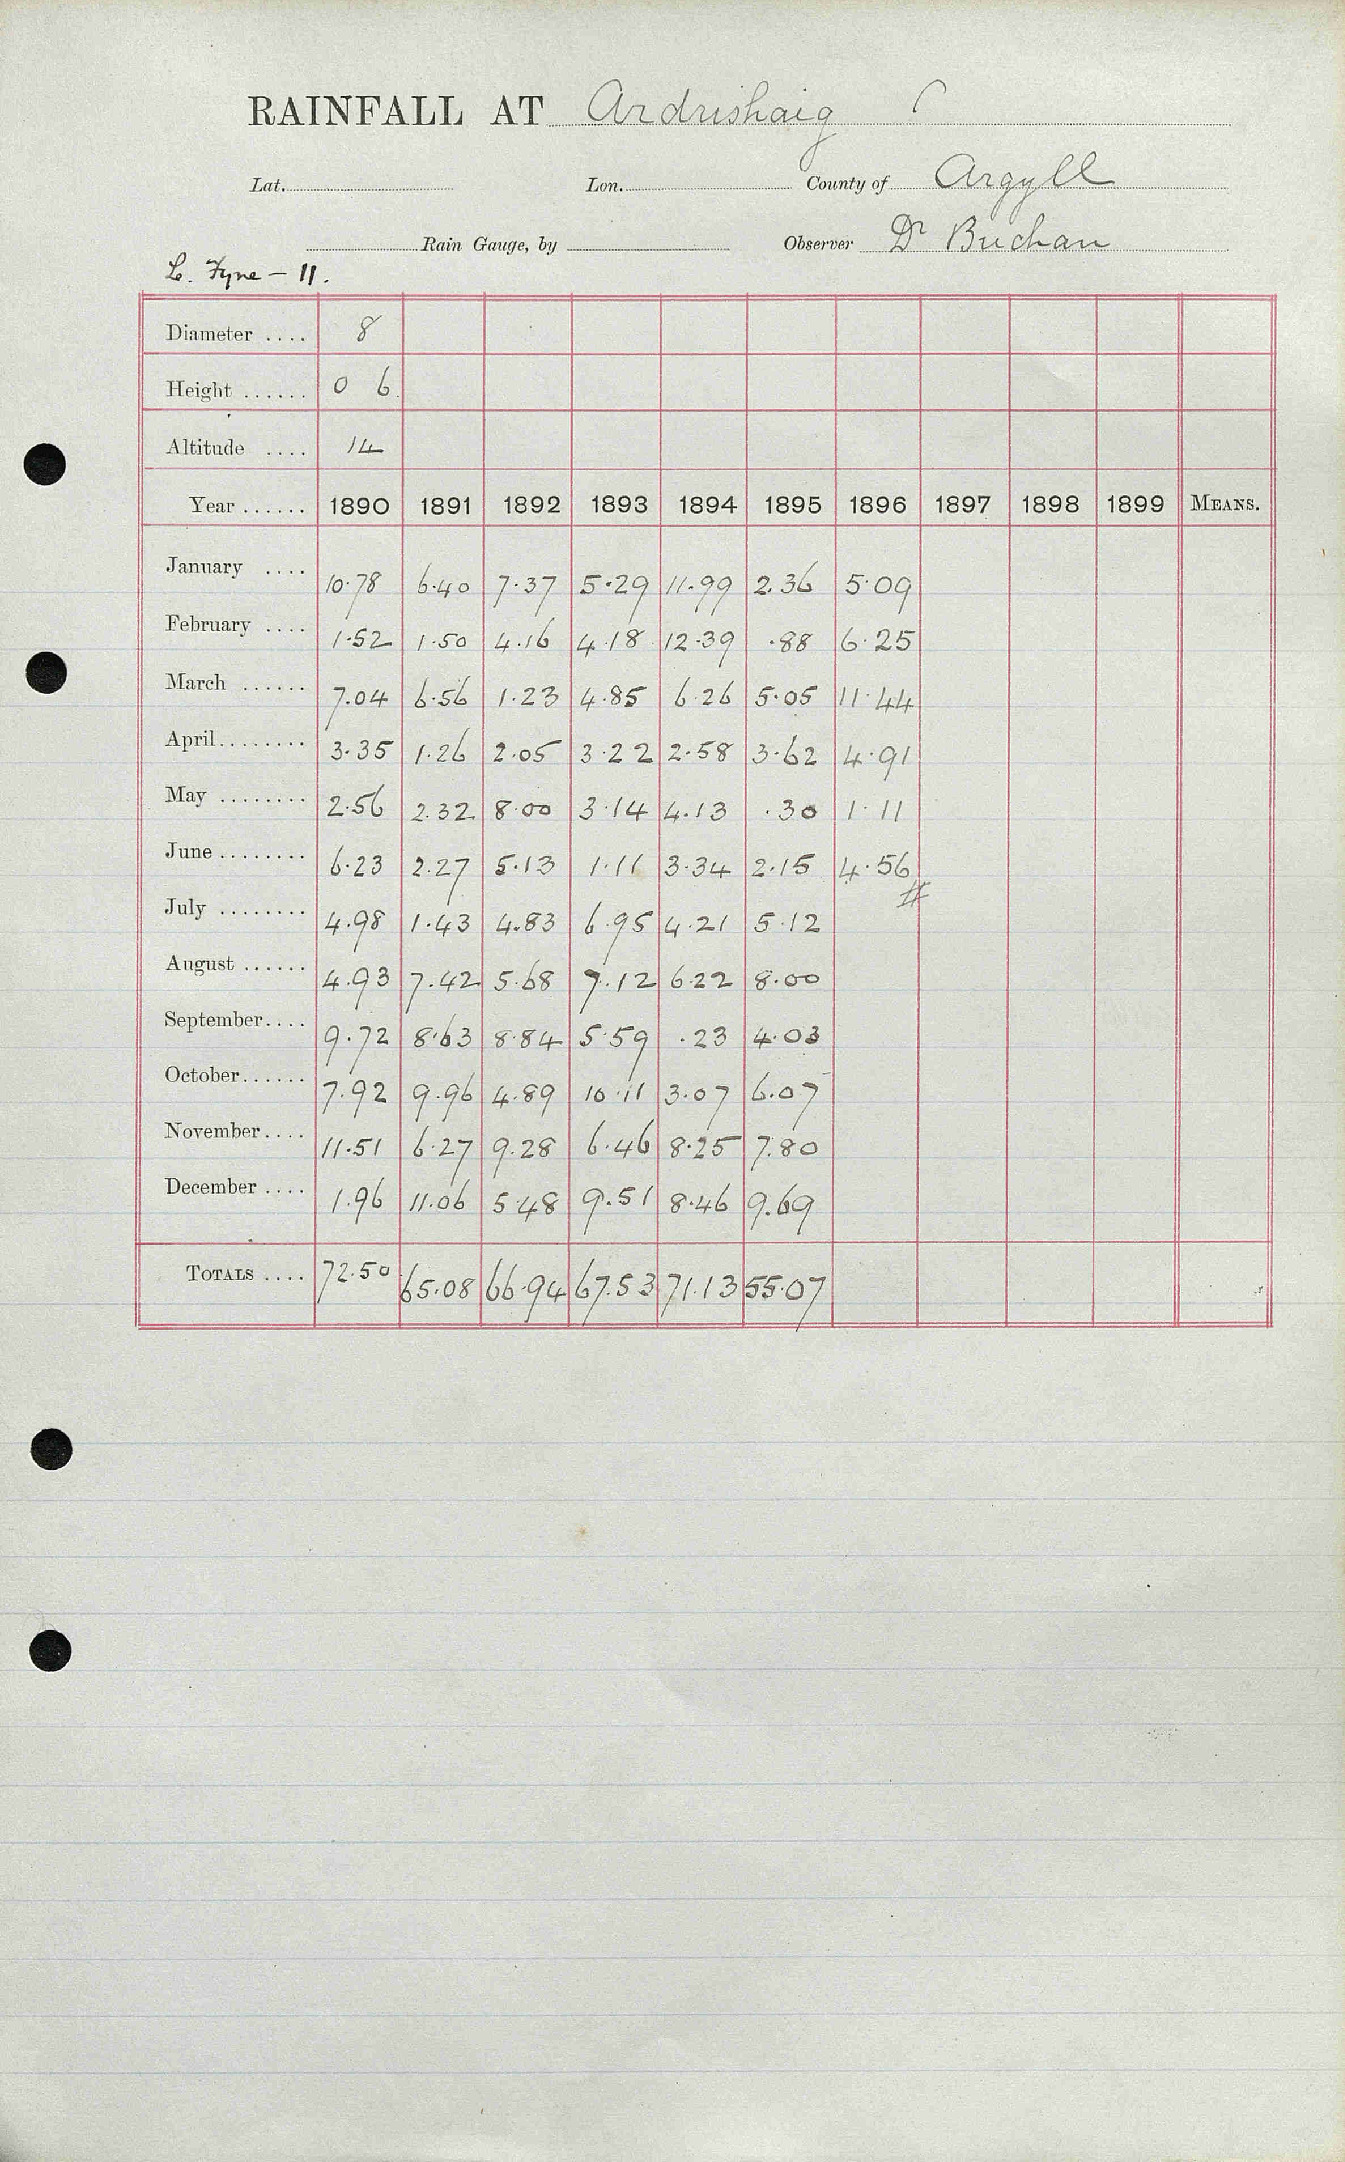 RAINFALL AT Ardrishaig
Lat. Lon. County of Argyll
Rain Gauge, by Observer Dr Buchan
L. Fyne - 11.
Diameter .... 8
Height ...... 0 6
Altitude .... 14
Year ...... 1890 1891 1892 1893 1894 1895 1896 1897 1898 1899 MEANS.
January .... 10.78 6.40 7.37 5.29 11.99 2.36 5.09
February .... 1.52 1.50 4.16 4.18 12.39 .88 6.25
March ...... 7.04 6.56 1.23 4.85 6.26 5.05 11.44
April........ 3.35 1.26 2.05 3.22 2.58 3.62 4.91
May ........ 2.56 2.32 8.00 3.14 4.13 .30 1.11
June ........ 6.23 2.27 5.13 1.11 3.34 2.15 4.56
July ........ 4.98 1.43 4.83 6.95 4.21 5.12 #
August ...... 4.93 7.42 5.68 7.12 6.22 8.00
September.... 9.72 8.63 8.84 5.59 .23 4.03
October...... 7.92 9.96 4.89 10.11 3.07 6.07
November.... 11.51 6.27 9.28 6.46 8.25 7.80
December .... 1.96 11.06 5.48 9.51 8.46 9.69
TOTALS .... 72.50 65.08 66.94 67.53 71.13 55.07